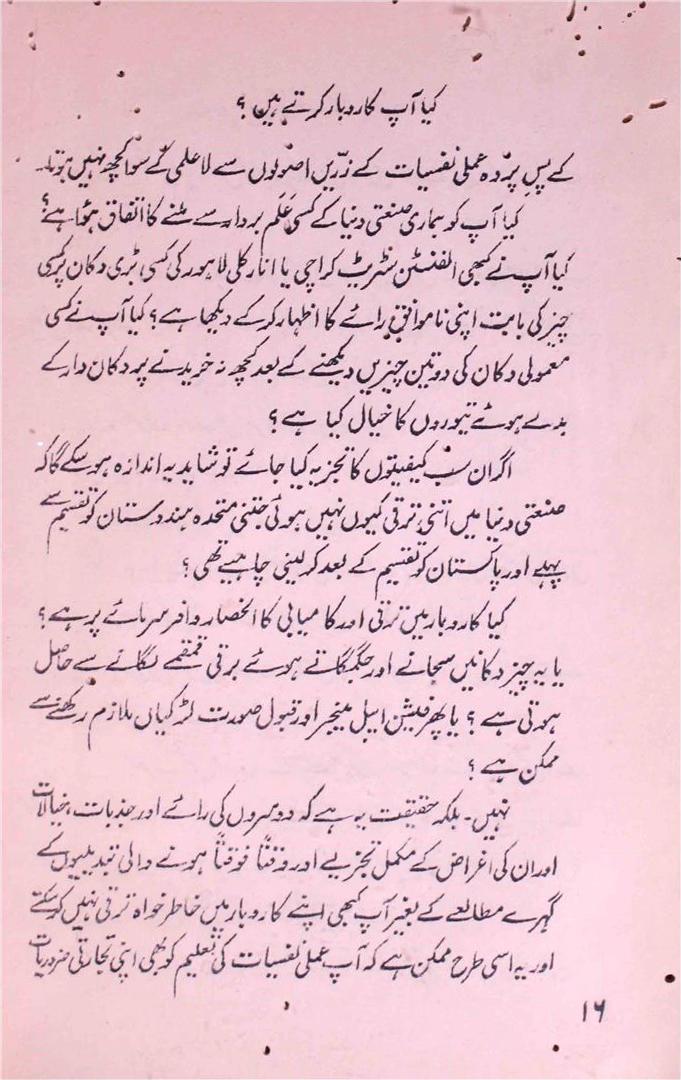 کیا آپ کاروبار کرتے ہیں ؟
کے پسِ پردہ عملی نفسیات کے زرّیں اصولوں سے لاعلمی کے سوا کچھ نہیں ہوتا۔
کیا آپ کو ہماری صنعتی دنیا کے کسی عَلَم بردار سے ملنے کا اتفاق ہوا ہے؟
کیا آپ نے کبھی الفنسٹن سٹریٹ کراچی یا انارکلی لاہور کی کسی بڑی دکان پر کسی
چیز کی بابت اپنی ناموافق رائے کا اظہار کر کے دیکھا ہے؟ کیا آپ نے کسی
معمولی دکان کی دو تین چیزیں دیکھنے کے بعد کچھ نہ خریدنے پر دکان دار کے
بدلے ہوئے تیوروں کا خیال کیا ہے ؟
اگر ان سب کیفیتوں کا تجزیہ کیا جائے تو شاید یہ اندازہ ہو سکے گا کہ
صنعتی دنیا میں اتنی ترقی کیوں نہیں ہوئی جتنی متحدہ ہندوستان کو تقسیم سے
پہلے اور پاکستان کو تقسیم کے بعد کر لینی چاہیے تھی ؟
کیا کاروبار میں ترقی اور کامیابی کا انحصار وافر سرمائے پر ہے ؟
یا یہ چیز دکانیں سجانے اور جگمگاتے ہوئے برقی قمقمے لگانے سے حاصل
ہوتی ہے ؟ یا پھر فیشن ایبل مینجر اور قبول صورت لڑکیاں ملازم رکھنے سے
ممکن ہے ؟
نہیں۔ بلکہ حقیقت یہ ہے کہ دوسروں کی رائے اور جذبات، خیالات
اور ان کی اغراض کے مکمل تجزیے اور وقتاً فوقتاً ہونے والی تبدیلیوں کے
گہرے مطالعے کے بغیر آپ کبھی اپنے کاروبار میں خاطر خواہ ترقی نہیں کر سکتے
اور یہ اسی طرح ممکن ہے کہ آپ عملی نفسیات کی تعلیم کو بھی اپنی تجارتی ضروریات
۱۶